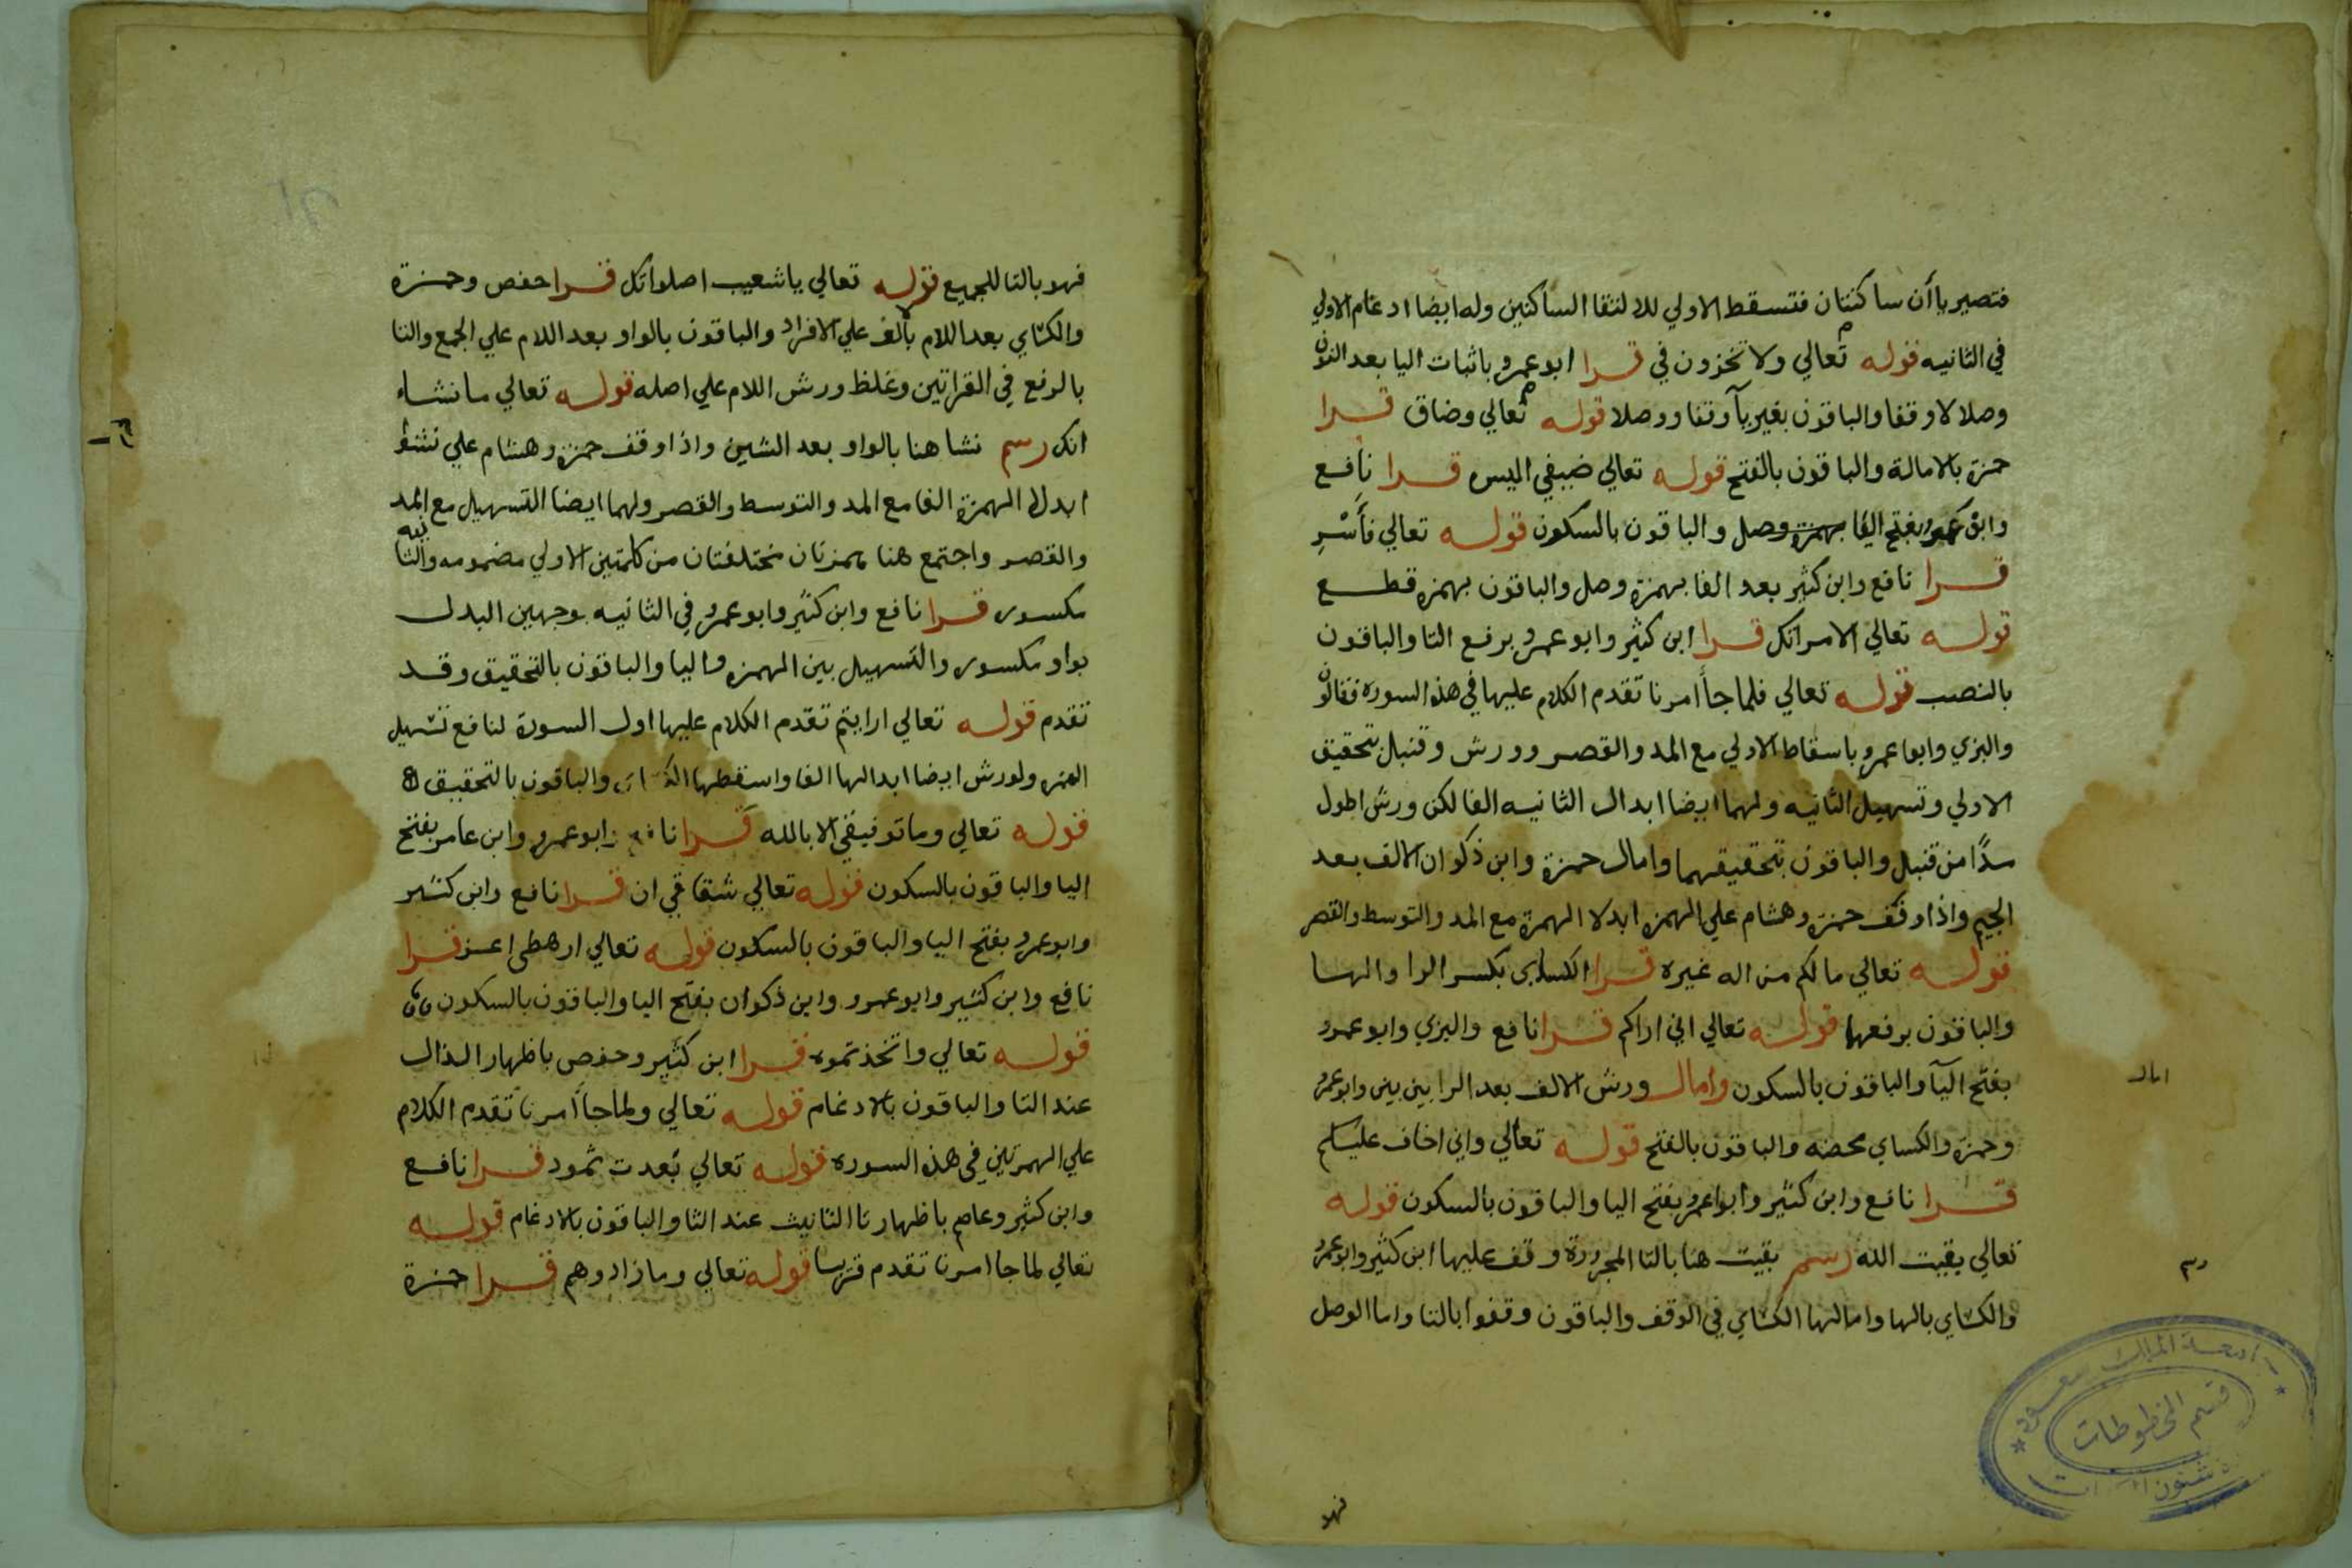 فتصير ياأن ساكنتان فتسقط الاولي للالتقا الساكنين وله ايضا ادغام الاولي
في الثانيه قوله تعالي ولا تخزون في قرا ابو عمرو باثبات اليا بعد النون
وصلا لا وقفا والباقون بغير يآ وقفا ووصلا قوله تعالي وضاق قرا
حمزة بالامالة والباقون بالفتح قوله تعالي ضيفي اليس قرا نافع
وابو عمرو بفتح اليا والباقون بالسكون قوله تعالي فأسر
قرا نافع وابن كثير بعد الفا بهمزة وصل والباقون بهمزه قطع
قوله تعالي الا مراتك قرا ابن كثير وابو عمرو برفع التا والباقون
بالنصب قوله تعالي فلما جأ أمرنا تقدم الكلام عليها في هذه السوره فقالون
والبزي وابو عمرو باسقاط الاولي مع المد والقصر وورش وقنبل بتحقيق
الاولي وتسهيل الثانيه ولهما ايضا ابدال الثانيه الفا لكن ورش اطول
مدًا من قنبل والباقون بتحقيقهما وامال حمزة وابن ذكوان الالف بعد
الجيم واذا وقف حمزه وهشام علي الهمزه ابدلا الهمزة مع المد والتوسط والقصر
قوله تعالي مالكم من اله غيره قرا الكساي بكسر الرا والها
والباقون برفعهما قوله تعالي اني اراكم قرا نافع والبزي وابو عمرو
بفتح اليآ والباقون بالسكون وامال ورش الالف بعد الرا بين بين وابو عمرو
وحمزه والكساي محضه والباقون بالفتح قوله تعالي واني اخاف عليكم
قرا نافع وابن كثير وابو عمرو بفتح اليا والباقون بالسكون قوله
تعالي بقيت الله رسم بقيت هنا بالتا المجرورة وقف عليها ابن كثير وابو عمرو
والكساي بالها وامالها الكساي في الوقف والباقون وقفوا بالتا واما الوصل
فهو
امال
رسم
جامعة الملك سعود
قسم المخطوطات
فهو بالتا للجميع قوله تعالي ياشعيب اصلواتك قرا حفص وحمزة
والكساي بعد اللام بألف علي الافراد والباقون بالواو بعد اللام علي الجمع والتا
بالرفع في القراتين وغلظ ورش اللام علي اصله قوله تعالي ما نشاء
انك رسم نشا هنا بالواو بعد الشين واذا وقف حمزة وهشام علي نشؤ
ابدلا الهمزة الفا مع المد والتوسط والقصر ولهما ايضا التسهيل مع المد
والقصر واجتمع هنا همزتان مختلفتان من كلمتين الاولي مضمومه والثانيه
مكسوره قرا نافع وابن كثير وابو عمرو في الثانيه بوجهين البدل
بواو مكسوره والتسهيل بين الهمزه واليا والباقون بالتحقيق وقد
تقدم قوله تعالي ارايتم تقدم الكلام عليها اول السورة لنافع تسهيل
الهمزه ولورش ايضا ابدالها الفا واسقطها الكساي والباقون بالتحقيق
قوله تعالي وما توفيقي الا بالله قرا نافع وابو عمرو وابن عامر بفتح
اليا والباقون بالسكون قوله تعالي شقاقي ان قرا نافع وابن كثير
وابو عمرو بفتح اليا والباقون بالسكون قوله تعالي ارهطي اعز قرا
نافع وابن كثير وابو عمرو وابن ذكوان بفتح اليا والباقون بالسكون
قوله تعالي واتخذتموه قرا ابن كثير وحفص باظهار الذال
عند التا والباقون بالادغام قوله تعالي ولما جاأ امرنا تقدم الكلام
علي الهمزتين في هذه السوره قوله تعالي بعدت ثمود قرا نافع
وابن كثير وعاصم باظهار تا التانيث عند الثا والباقون بالادغام قوله
تعالي لما جا امرنا تقدم قريبا قوله تعالي وما زادوهم قرا حمزة